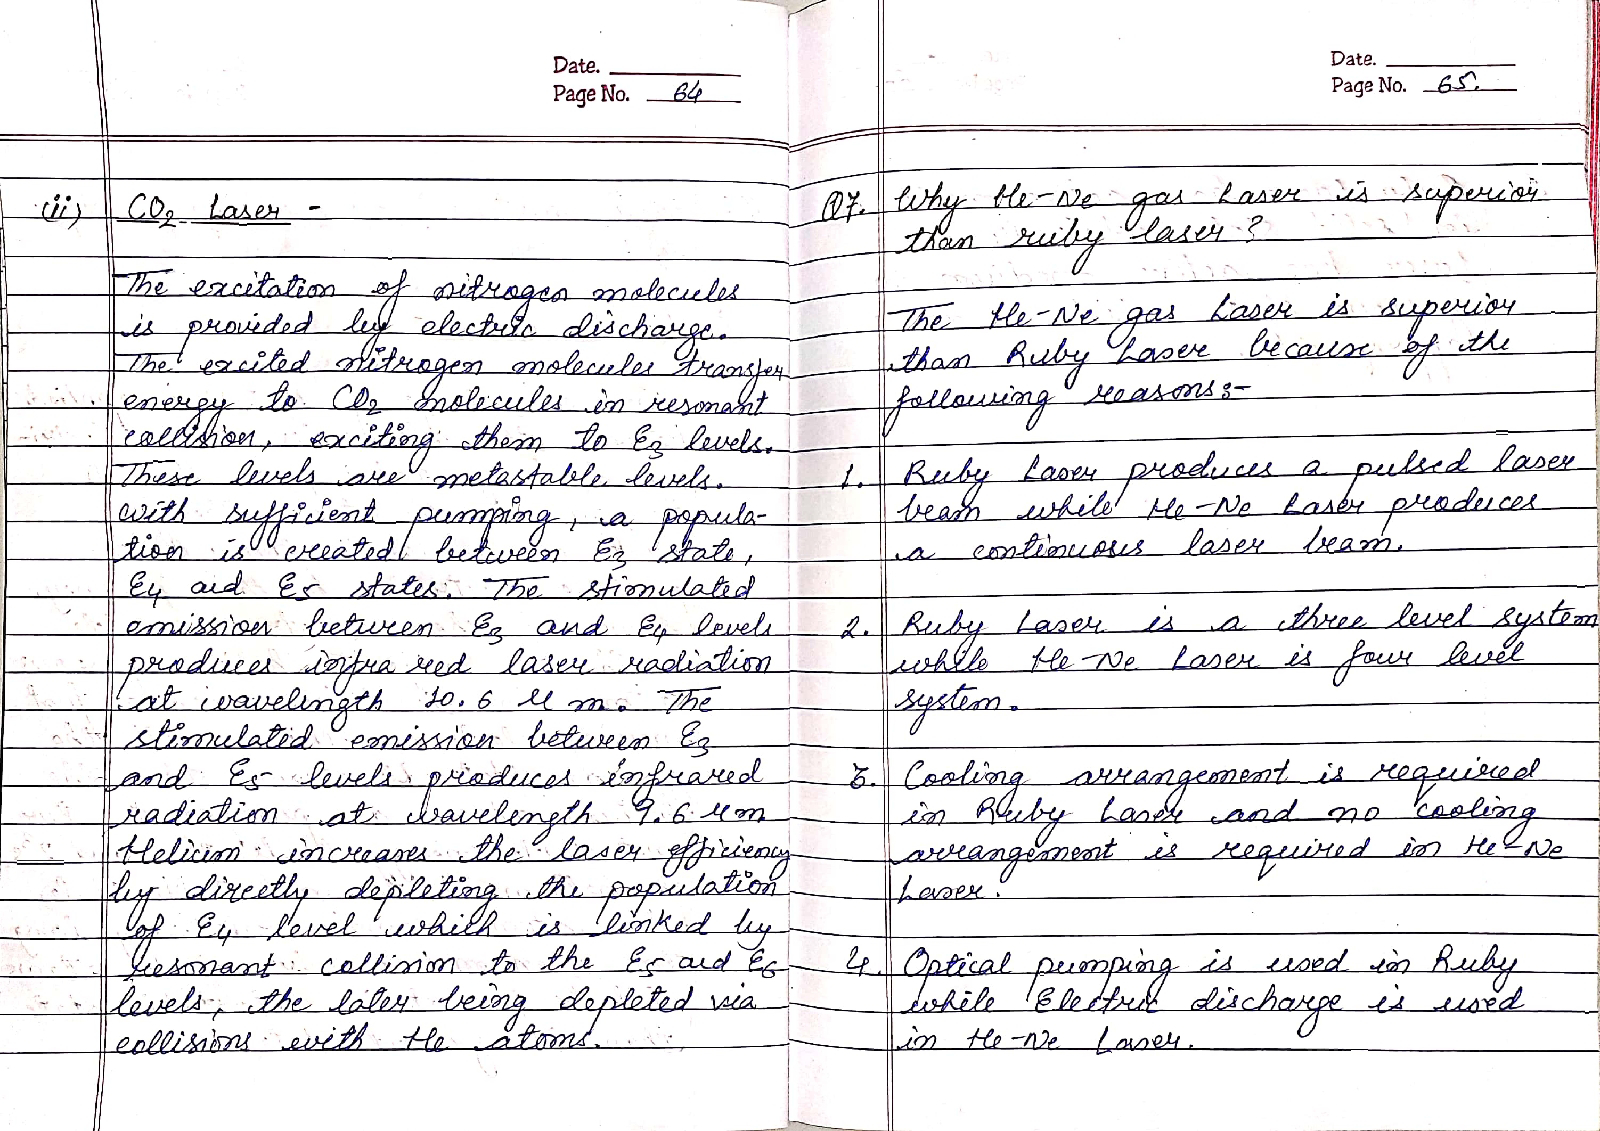 Date.
Page No. 64
(ii) CO₂ Laser -
The excitation of nitrogen molecules
is provided by electric discharge.
The excited nitrogen molecules transfer
energy to CO₂ molecules in resonant
collision, exciting them to E₃ levels.
These levels are metastable levels.
with sufficient pumping, a popula-
tion is created between E₃ state,
E₄ and E₅ states. The stimulated
emission between E₃ and E₄ levels
produces infra red laser radiation
at wavelength 10.6 μ m. The
stimulated emission between E₃
and E₅ levels produces infrared
radiation at wavelength 9.6 μm
Helium increases the laser efficiency
by directly depleting the population
of E₄ level which is linked by
resonant collision to the E₅ and E₆
levels, the later being depleted via
collisions with He atoms.
Date.
Page No. 65.
Q7. Why He-Ne gas Laser is superior
than ruby laser?
The He-Ne gas Laser is superior
than Ruby Laser because of the
following reasons:-
1. Ruby Laser produces a pulsed laser
beam while He-Ne Laser produces
a continuous laser beam.
2. Ruby Laser is a three level system
while He-Ne Laser is four level
system.
3. Cooling arrangement is required
in Ruby Laser and no cooling
arrangement is required in He-Ne
Laser.
4. Optical pumping is used in Ruby
while Electric discharge is used
in He-Ne Laser.